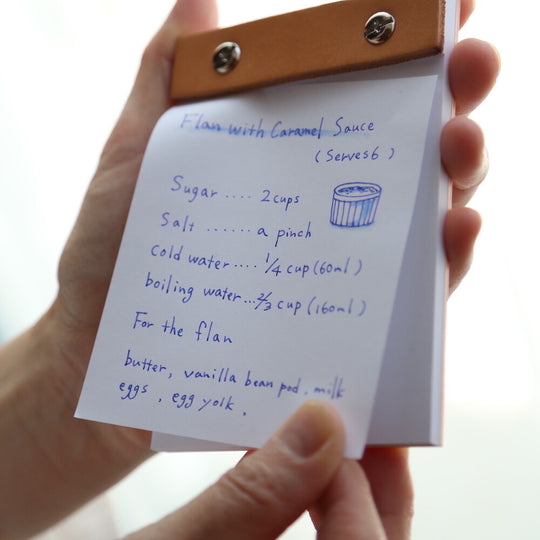 Flan with Caramel Sauce
(Serves 6)
Sugar .... 2 cups
Salt ...... a pinch
cold water .... 1/4 cup (60ml)
boiling water ... 2/3 cup (160ml)
For the flan
butter, vanilla bean pod, milk
eggs, egg yolk,